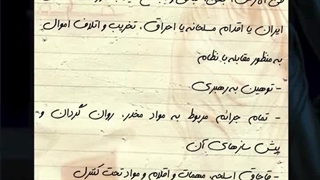 ایران یا اقدام مسلحانه یا احراق، تخریب و اتلاف اموال
به منظور مقابله با نظام
- توهین به رهبری
- تمام جرائم مربوط به مواد مخدر، روان گردان و
پیش سازهای آن
- قاچاق اسلحه، مهمات و اقلام و مواد تحت کنترل